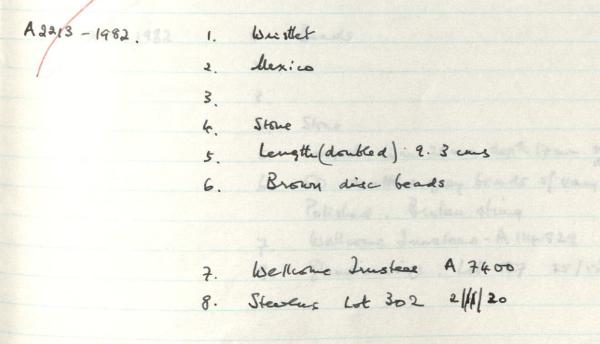 A2213-1982. 1. Wristlet
2. Mexico
3.
4. Stone
5. Length (doubled): 9.3 cms
6. Brown disc beads
7. Wellcome Trustees A 7400
8. Stevens Lot 302 2/11/20